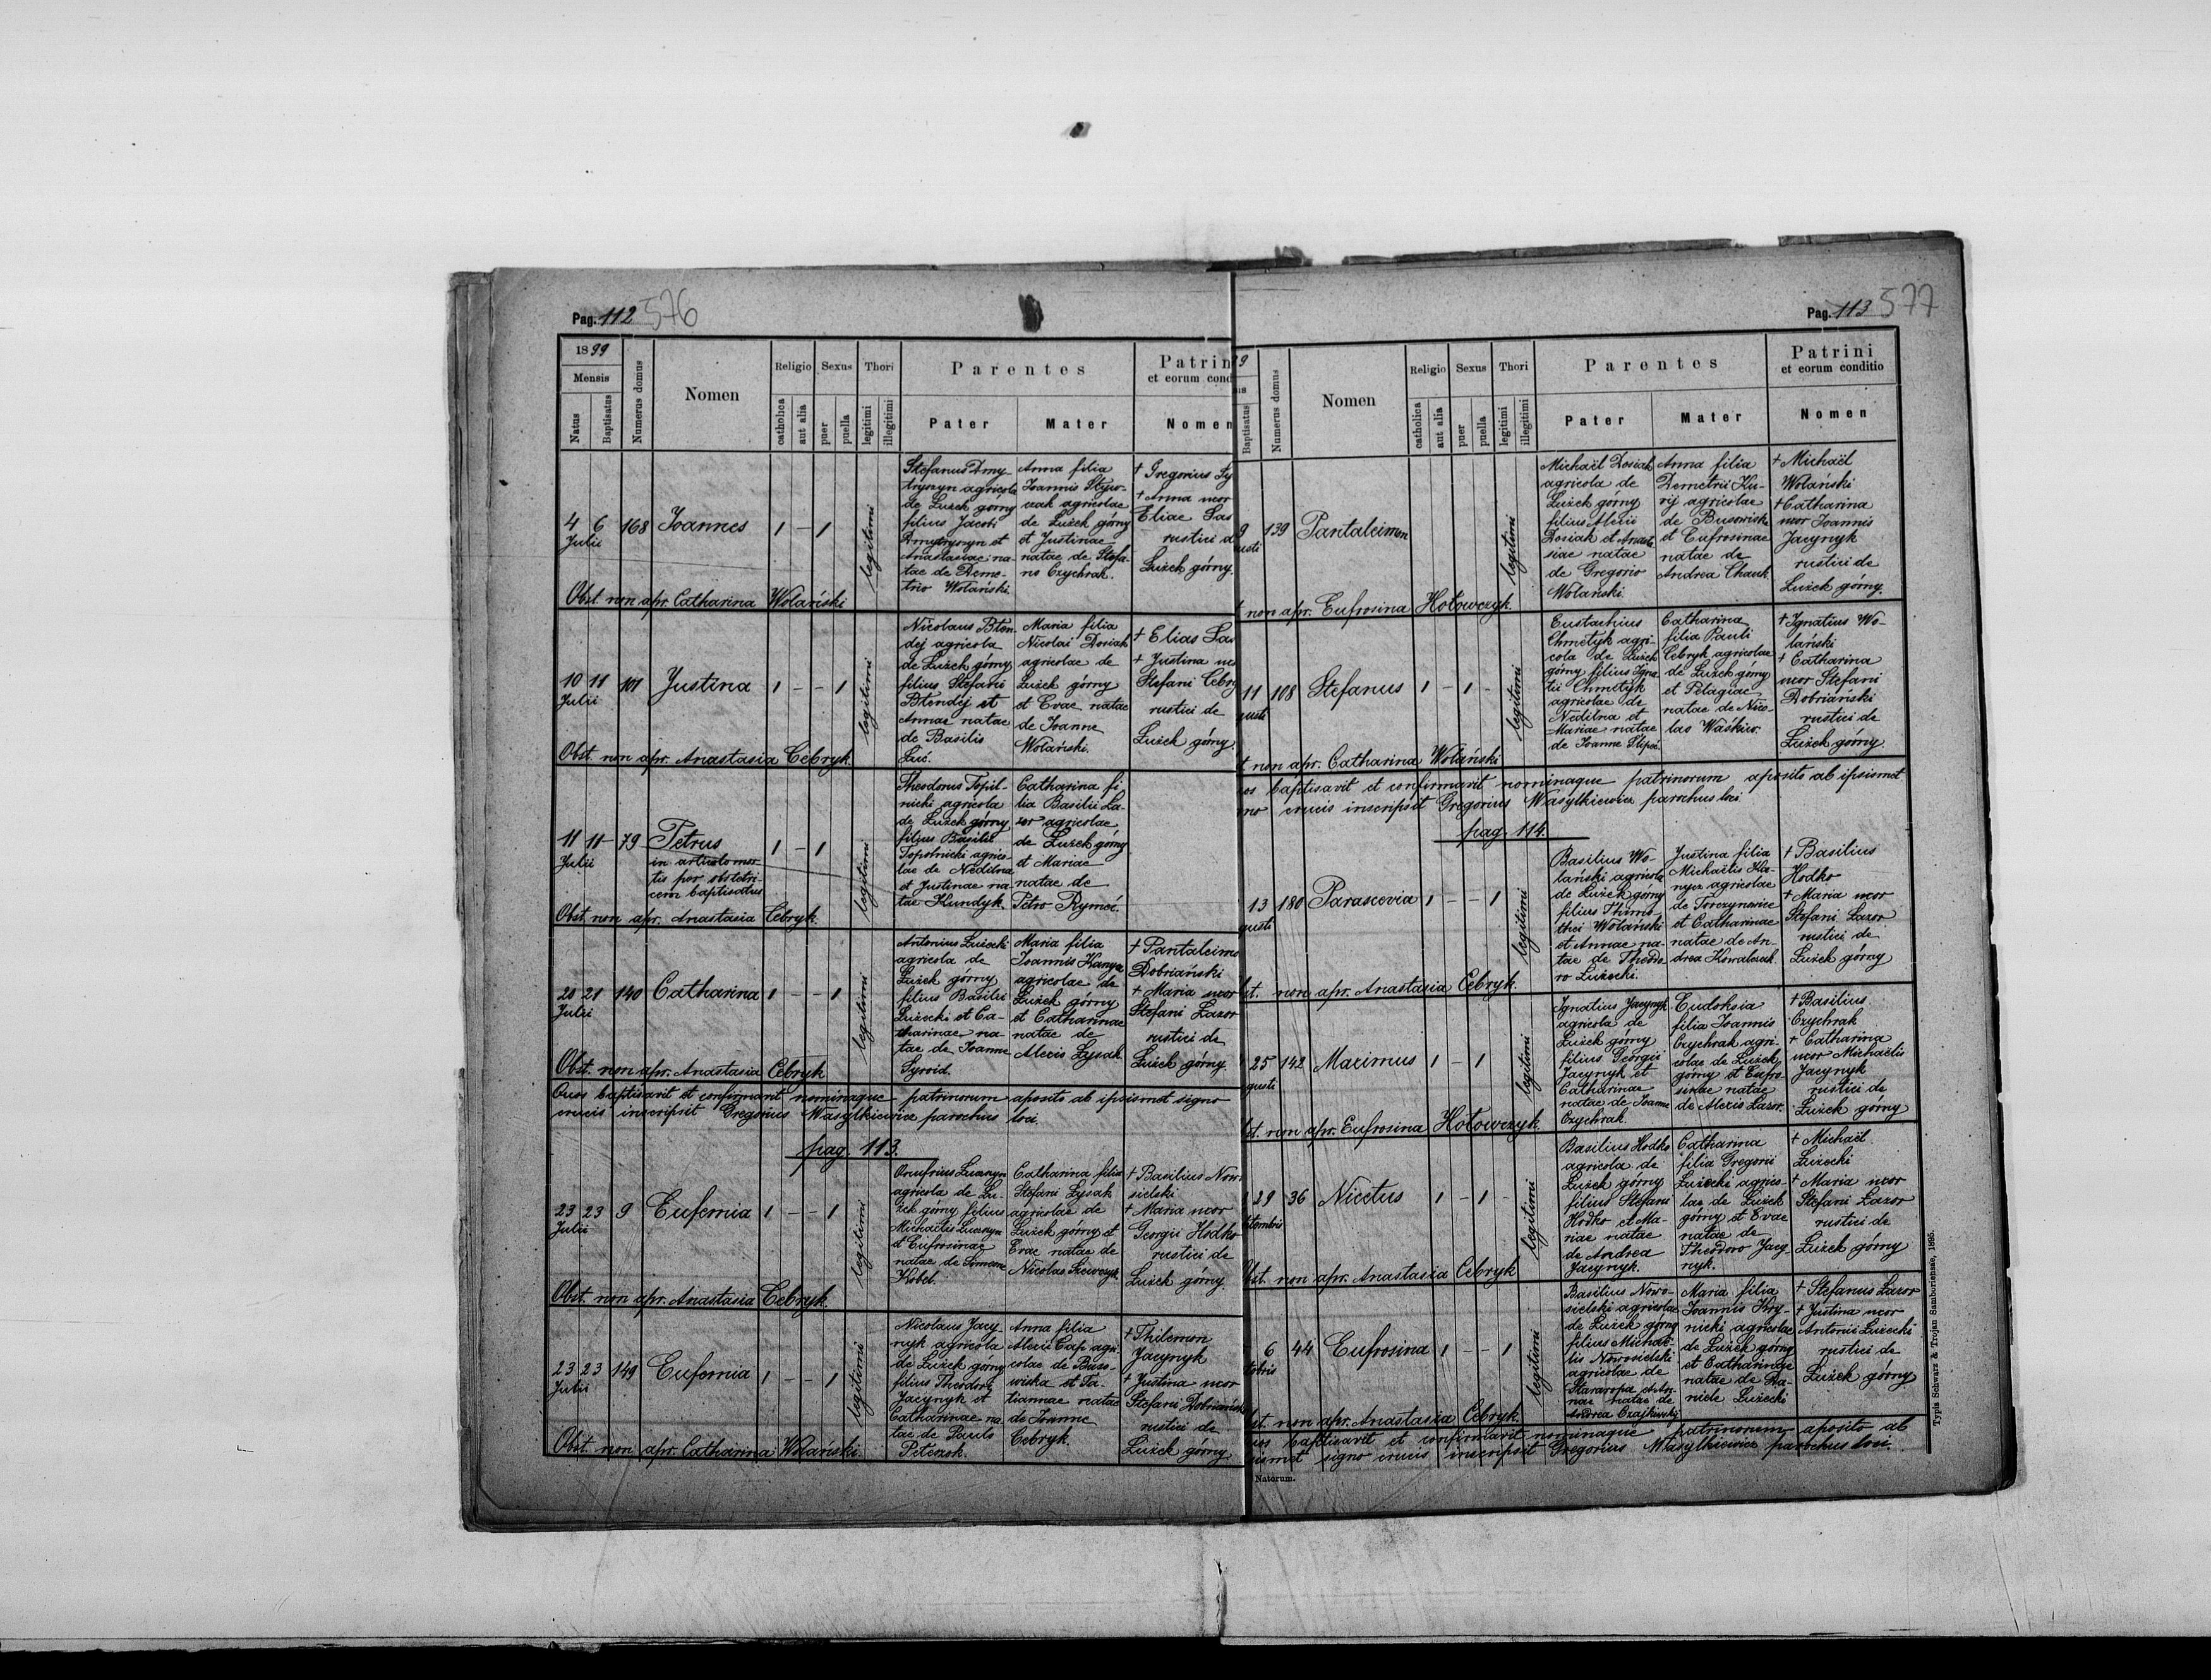 Pag. 112 576
1899
Mensis
Natus
Baptisatus
Numerus domus
Nomen
Religio
catholica
aut alia
Sexus
puer
puella
Thori
legitimi
illegitimi
Parentes
Pater
Mater
Patrin
et eorum cond
Nomen
4 6 168 Joannes 1 – 1
Julii
legitimi
Stefanus Dmy-
tryszyn agricola
de Łużek górny
filius Jacobi
Dmytryszyn et
Anastasiae na-
tae de Deme-
trio Wolański.
Anna filia
Joannis Styw-
czak agricolae
de Łużek górny
et Justinae
natae de Stefa-
no Czychrak.
† Gregorius Sy
† Anna uxor
Eliae Las
rustici d
Łużek górny.
Obst. non apr. Catharina Wolański
10 11 101 Justina 1 – – 1
Julii
legitimi
Nicolaus Blen-
dej agricola
de Łużek górny
filius Stefani
Blendej et
Annae natae
de Basilio
Maria filia
Nicolai Dosiak
agricolae de
Łużek górny
et Evae natae
de Joanne
Wolański.
† Elias Las
† Justina ux
Stefani Cebry
rustici de
Łużek górny.
Obst. non apr. Anastasia Cebryk.
11 11 79 Petrus 1 – 1
Julii
in articulo mor-
tis per obstetri-
cem baptisatus
legitimi
Theodorus Topil-
nicki agricola
de Łużek górny
filius Basilii
Topolnicki agrico-
lae de Nedilna
et Justinae na-
tae Hundyk.
Catharina fi-
lia Basilii La-
zor agricolae
de Łużek górny
et Mariae
natae de
Petro Rymeć.
Obst. non apr. Anastasia Cebryk.
20 21 140 Catharina 1 – – 1
Julii
legitimi
Antonius Łużecki
agricola de
Łużek górny
filius Basilii
Łużecki et Ca-
tharinae na-
tae de Joanne
Syroid.
Maria filia
Joannis Kanya
agricolae de
Łużek górny
et Catharinae
natae de
Alexis Łysak
† Pantaleimo
Dobriański
† Maria uxor
Stefani Lazor
rustici de
Łużek górny.
Obst. non apr. Anastasia Cebryk
Quos baptisavit et confirmavit nominaque patrinorum aposito ab ipsismet signo
crucis inscripsit Gregorius Wasylkiewicz parochus loci.
pag. 113.
23 23 9 Eufemia 1 – – 1
Julii
legitimi
Onufrius Luczyn
agricola de Łu-
żek górny filius
Michaelis Luczyn
et Eufrosinae
natae de Simeone
Kobel.
Catharina filia
Stefani Łysak
agricolae de
Łużek górny et
Evae natae de
Nicolao Szewczyk.
† Basilius Nowo
sielski
† Maria uxor
Georgii Hodko
rustici de
Łużek górny.
Obst. non apr. Anastasia Cebryk.
23 23 149 Eufemia 1 – – 1
Julii
legitimi
Nicolaus Jacy-
nyk agricola
de Łużek górny
filius Theodori
Jacynyk et
Catharinae na-
tae de Paulo
Petczok.
Anna filia
Alexii Cap agri-
colae de Buso-
wiska et Ta-
tiannae natae
de Joanne
Cebryk.
† Philemon
Jacynyk
† Justina uxor
Stefani Dobriański
rustici de
Łużek górny.
Obst. non apr. Catharina Wolański.
Pag. 113 577
9
Baptisatus
Numerus domus
Nomen
Religio
catholica
aut alia
Sexus
puer
puella
Thori
legitimi
illegitimi
Parentes
Pater
Mater
Patrini
et eorum conditio
Nomen
9 139 Pantaleimon
usti
legitimi
Michaël Dosiak
agricola de
Łużek górny
filius Alexii
Dosiak et Anasta
siae natae
de Gregorio
Wolański.
Anna filia
Demetrii Ku-
rij agricolae
de Busowiska
et Eufrosinae
natae de
Andrea Chauk.
† Michaël
Wolański
† Catharina
uxor Joannis
Jacynyk
rustici de
Łużek górny.
t non apr. Eufrosina Hołowczyk.
11 108 Stefanus 1 – 1 –
gusti
legitimi
Eustachius
Chmetyk agri-
cola de Łużek
górny filius Igna-
tii Chmetyk
agricolae de
Nedilna et
Mariae natae
de Joanne
Catharina
filia Pauli
Cebryk agricolae
de Łużek górny
et Pelagiae
natae de Nico-
lao Waśkiw.
† Ignatius Wo-
lański
† Catharina
uxor Stefani
Dobriański
rustici de
Łużek górny.
t non apr. Catharina Wolański
os baptisavit et confirmavit nominaque patrinorum aposito ab ipsismet
no crucis inscripsit Gregorius Wasylkiewicz parochus loci
pag. 114.
13 180 Parascevia 1 – – 1
gusti
legitimi
Basilius Wo-
lański agricola
de Łużek górny
filius Thimo-
thei Wolański
et Annae na-
tae de Theodo
ro Łużecki.
Justina filia
Michaelis Ka-
nycz agricolae
de Torczynowice
et Catharinae
natae de An-
drea Kowalczak.
† Basilius
Hodko
† Maria uxor
Stefani Lazor
rustici de
Łużek górny
st. non apr. Anastasia Cebryk.
25 142 Maximus 1 – 1
gusti
legitimi
Ignatius Jacynyk
agricola de
Łużek górny
filius Georgii
Jacynyk et
Catharinae
natae de Joanne
Czychrak.
Eudoksia
filia Joannis
Czychrak agri-
colae de Łużek
górny et Eufro-
sinae natae
de Alexis Lazor.
† Basilius
Czychrak
† Catharina
uxor Michaelis
Jacynyk
rustici de
Łużek górny
st. non apr. Eufrosina Hołowczyk.
29 36 Nicetus 1 – 1 –
tembris
legitimi
Basilius Hodko
agricola de
Łużek górny
filius Stefani
Hodko et Ma-
riae natae
de Andrea
Jacynyk.
Catharina
filia Gregorii
Łużecki agrico-
lae de Łużek
górny et Evae
natae de
Theodoro Jacy-
nyk.
† Michaël
Łużecki
† Maria uxor
Stefani Lazor
rustici de
Łużek górny
Obst. non apr. Anastasia Cebryk
6 44 Eufrosina 1 – – 1
tobris
legitimi
Basilius Nowo-
sielski agricola
de Łużek górny
filius Michaë-
lis Nowosielski
agricolae de
Starasropa et An-
nae natae de
Andrea Czajkowski
Maria filia
Joannis Kry-
nicki agricolae
de Łużek górny
et Catharinae
natae de Da-
niele Łużecki
† Stefanus Lazor
† Justina uxor
Antonii Łużecki
rustici de
Łużek górny
st. non apr. Anastasia Cebryk.
uos baptisavit et confirmavit nominaque patrinorum aposito ab
ipsismet signo crucis inscripsit Gregorius Wasylkiewicz parochus loci.
Natorum.
Typis Schwarz & Trojan Samboriensae, 1895.